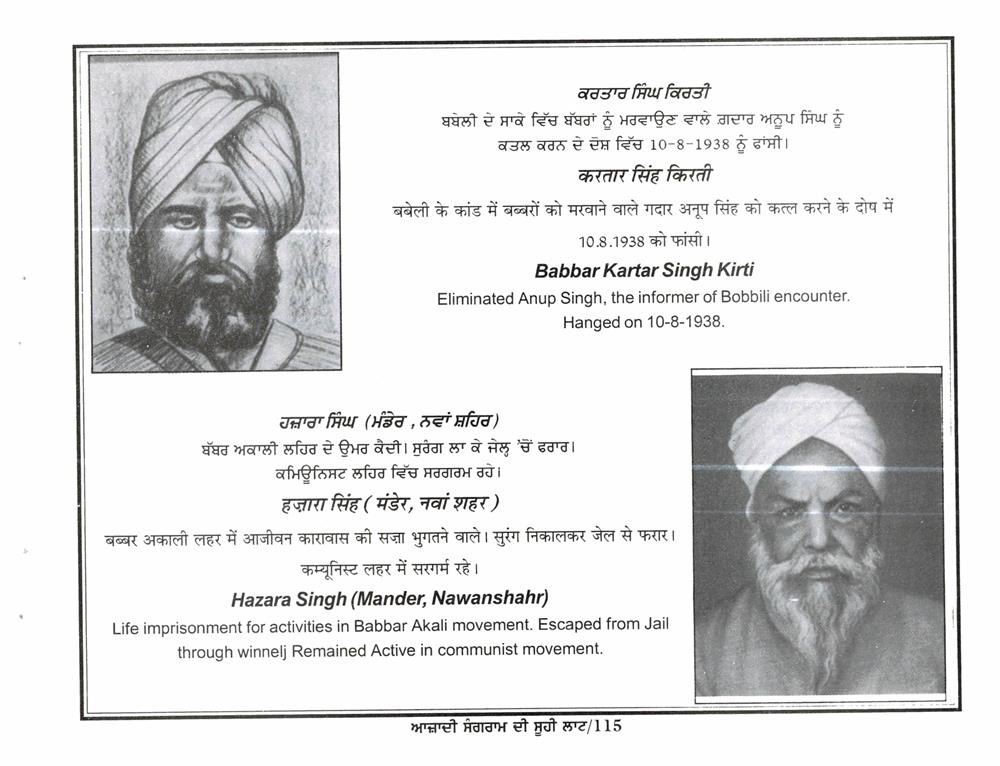 ਕਰਤਾਰ ਸਿੰਘ ਕਿਰਤੀ
ਬਬੇਲੀ ਦੇ ਸਾਕੇ ਵਿੱਚ ਬੱਬਰਾਂ ਨੂੰ ਮਰਵਾਉਣ ਵਾਲੇ ਗ਼ਦਾਰ ਅਨੂਪ ਸਿੰਘ ਨੂੰ
ਕਤਲ ਕਰਨ ਦੇ ਦੋਸ਼ ਵਿੱਚ 10-8-1938 ਨੂੰ ਫਾਂਸੀ।
करतार सिंह किरती
बबेली के कांड में बब्बरों को मरवाने वाले गदार अनूप सिंह को कत्ल करने के दोष में
10.8.1938 को फांसी।
Babbar Kartar Singh Kirti
Eliminated Anup Singh, the informer of Bobbili encounter.
Hanged on 10-8-1938.
ਹਜ਼ਾਰਾ ਸਿੰਘ (ਮੰਡੇਰ, ਨਵਾਂ ਸ਼ਹਿਰ)
ਬੱਬਰ ਅਕਾਲੀ ਲਹਿਰ ਦੇ ਉਮਰ ਕੈਦੀ। ਸੁਰੰਗ ਲਾ ਕੇ ਜੇਲ੍ਹ 'ਚੋਂ ਫਰਾਰ।
ਕਮਿਊਨਿਸਟ ਲਹਿਰ ਵਿੱਚ ਸਰਗਰਮ ਰਹੇ।
हज़ारा सिंह ( मंडेर, नवां शहर )
बब्बर अकाली लहर में आजीवन कारावास की सजा भुगतने वाले। सुरंग निकालकर जेल से फरार।
कम्यूनिस्ट लहर में सरगर्म रहे।
Hazara Singh (Mander, Nawanshahr)
Life imprisonment for activities in Babbar Akali movement. Escaped from Jail
through winnelj Remained Active in communist movement.
ਆਜ਼ਾਦੀ ਸੰਗਰਾਮ ਦੀ ਸੂਹੀ ਲਾਟ/115